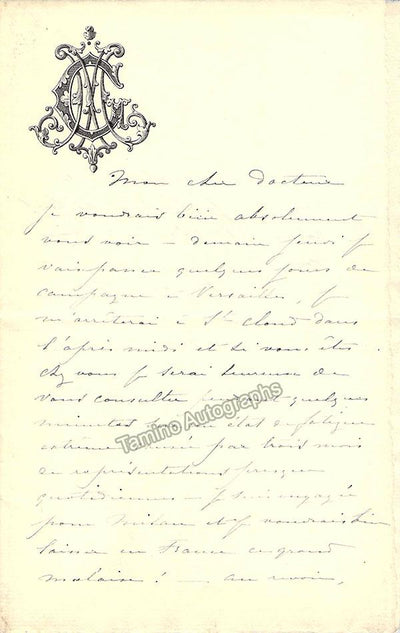 Mon cher docteur
je voudrais bien absolument
vous voir – demain jeudi je
vais passer quelques jours de
campagne à Versailles, je
m'arrêterai à St cloud dans
l'après midi et si vous êtes
chez vous je serai heureuse de
vous consulter quelques
minutes état de fatigue
extrême par trois mois
de représentations presque
quotidiennes – je suis engagée
pour Milan et je voudrais bien
laisser en France ce grand
malaise ! – au revoir,
Tamino Autographs